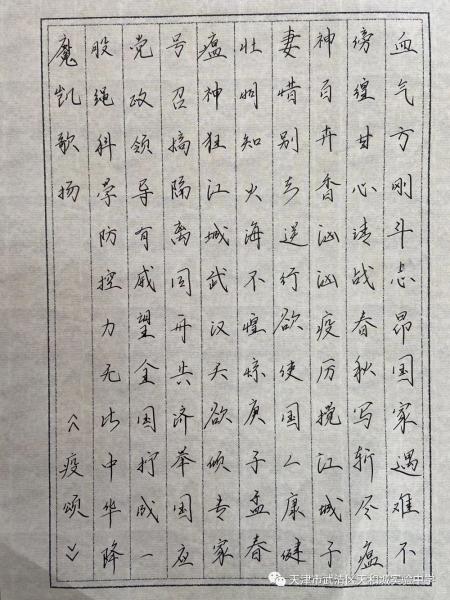 血气方刚斗志昂国家遇难不
徬徨甘心请战春秋写斩尽瘟
神百卉香汹汹疫厉搅江城子
妻惜别去送行欲使国人康健
壮明知火海不惶惊庚子孟春
瘟神狂江城武汉天欲倾专家
号召搞隔离同舟共济举国应
党政领导有威望全国拧成一
股绳科学防控力无比中华降
魔凯歌扬 《疫颂》
天津市武清区天和城实验中学